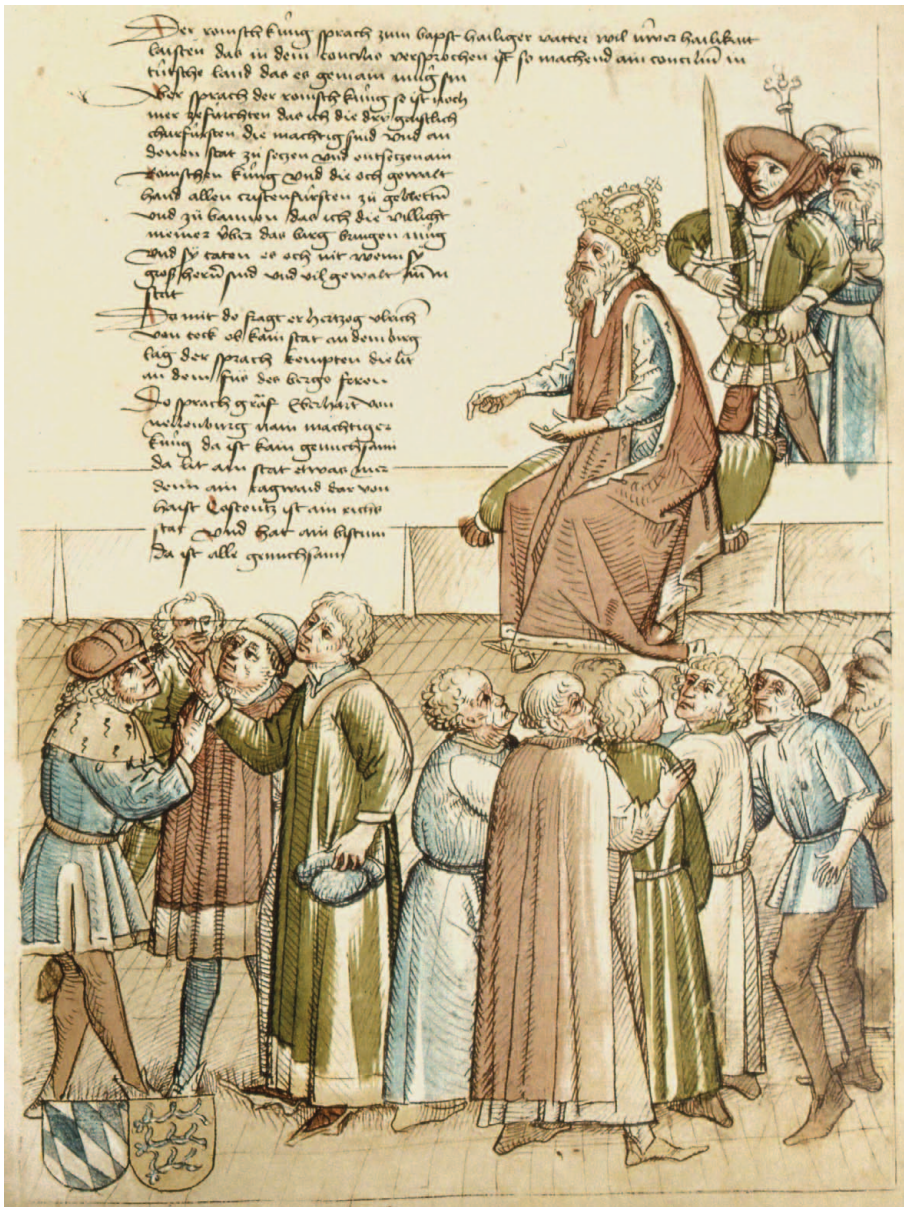 Der romisch kúng sprach zum bapst hailiger vatter wil úwer hailikait
laisten das in dem concilio versprochen ist so machend ain concilium in
tútsche land das es gemain múg sin
Aber sprach der romisch kúng so ist noch
mer zefúrchten das ich die dry gaistlich
churfúrsten die máchtig sind vnd an
denen stat zú setzen vnd entsetzen ain
Romischen kúng vnd die och gewalt
hand allen cristenfúrsten zú gebietin
vnd zú bannen das ich die villicht
meiner úber das birg bringen múg
vnd sy táten es och nit wenn sy
groß herren sind vnd vil gewalt
stat
Da mit do fragt er hertzog vlrich
von teck ob kain stat an dem birg
lág der sprach kempten die lit
an dem fús des bergs feren
Do sprach gráf Eberhart von
nellenburg nain mächtiger
kúng da ist kain genúchsami
da lit ain stat etwas mer
denn ain tagwaid dar von
haist Costentz ist ain richs
stat vnd hat ain bistum
da ist alle genúchsami